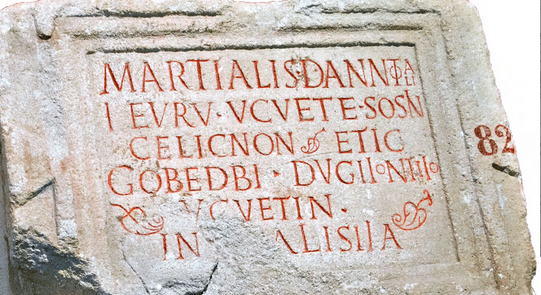 MARTIALIS DANNOTALI
IEVRV · VCVETE · SOSIN
CELICNON ETIC
GOBEDBI · DVGIIONTIIO
VCVETIN ·
IN ALISIIA
82